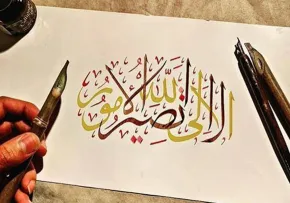 ألا إلى الله تصير الأمور